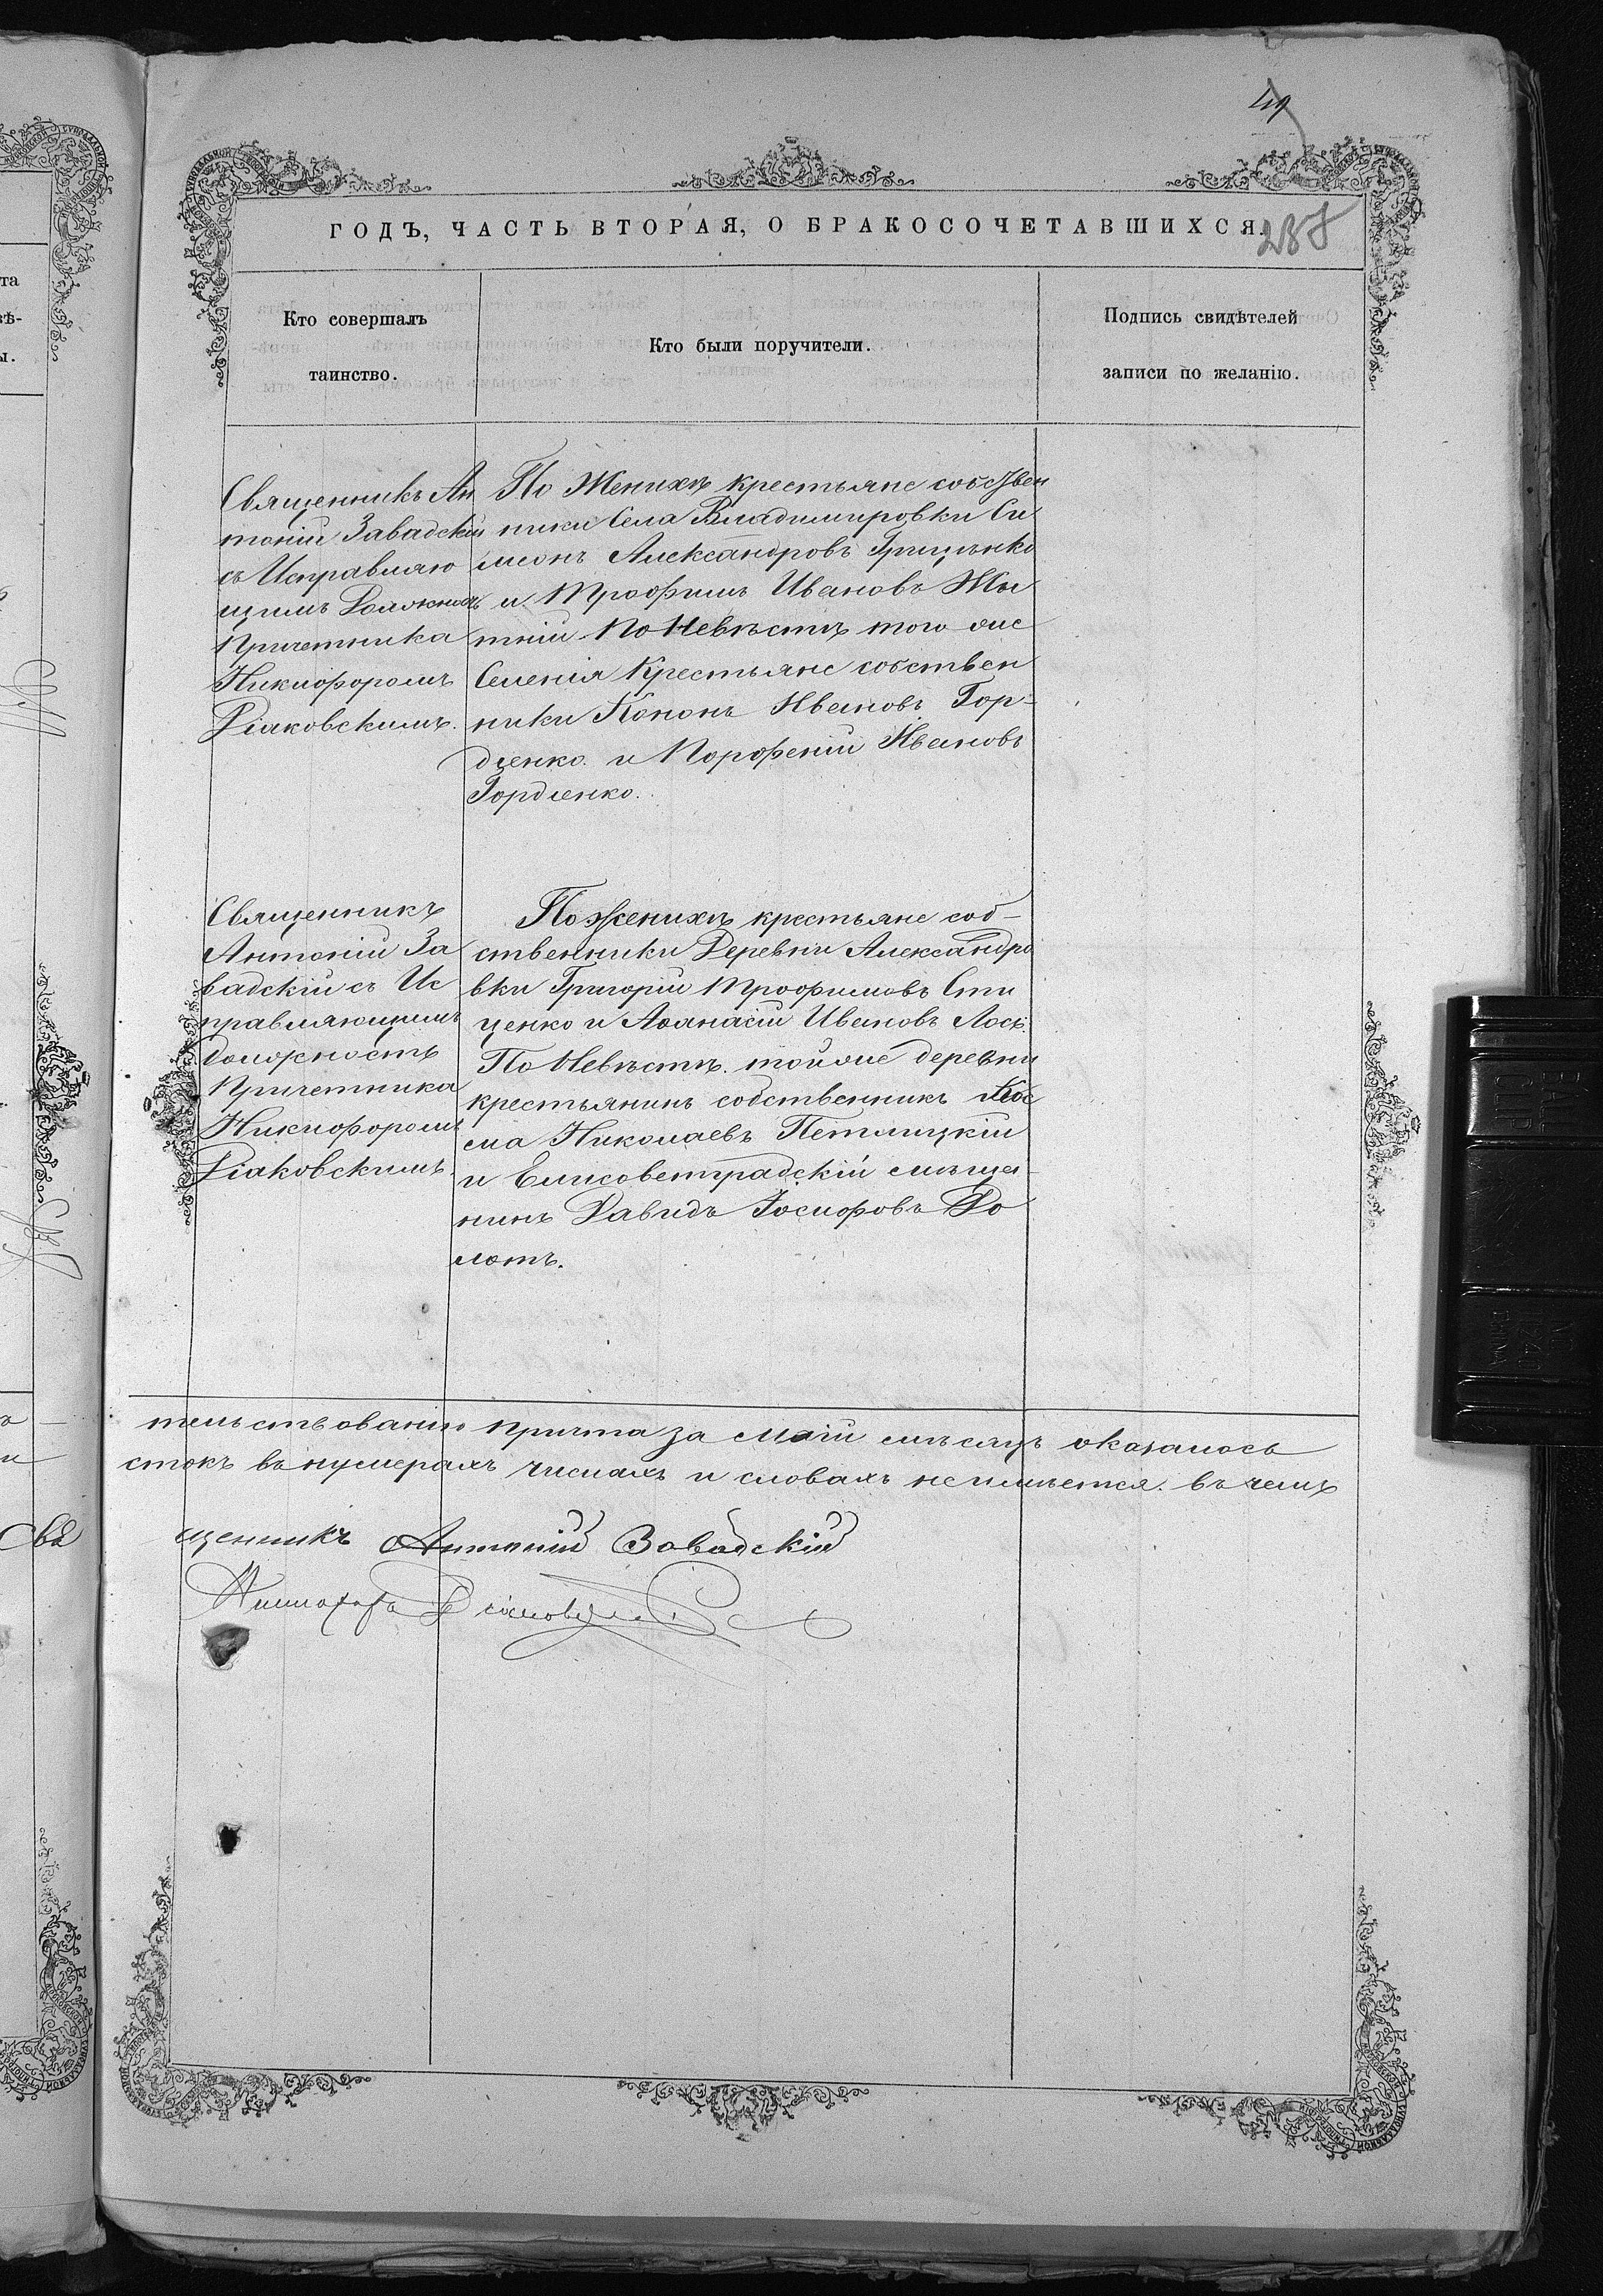 49
ГОДЪ, ЧАСТЬ ВТОРАЯ, О БРАКОСОЧЕТАВШИХСЯ.
Кто совершалъ
таинство.
Кто были поручители.
Подпись свидѣтелей
записи по желанію.
Священникъ Ан
тоній Завадскій
съ Исправляю
щимъ Должность
Причетника
Никифоромъ
Діаковскимъ.
По Женихѣ крестьяне собствен
ники Села Владимировки Си
меонъ Александровъ Грицѣнко
и Трофимъ Ивановъ Жи
тній По Невѣстѣ того же
Селенія Крестьяне собствен
ники Кононъ Ивановъ Гор-
дѣенко и Порфеній Ивановъ
Гордіенко.
Священникъ
Антоній За
вадскій съ Ис
правляющимъ
Должность
Причетника
Никифоромъ
Діаковскимъ.
По женихѣ крестьяне соб-
ственники Деревни Александро
вки Григорій Трофимовъ Сти
ценко и Аѳанасій Ивановъ Лось.
По Невѣстѣ той же деревни
крестьянинъ собственникъ Кос
ма Николаевъ Петлицкій
и Елисоветградскій мѣща-
нинъ Давидъ Іосифовъ До
лотъ.
тельствованіи причта за Маій мѣсяцъ оказалось
стокъ въ нумерахъ числахъ и словахъ не имѣется. въ чемъ
Свя
щенникъ Антоній Завадскій
Никифоръ Діаковскій